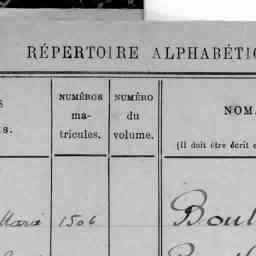 RÉPERTOIRE ALPHABÉTI
S
S.
NUMÉROS
ma-
tricules.
NUMÉRO
du
volume.
NOM
(Il doit être écrit e
Marie 1506
Boul